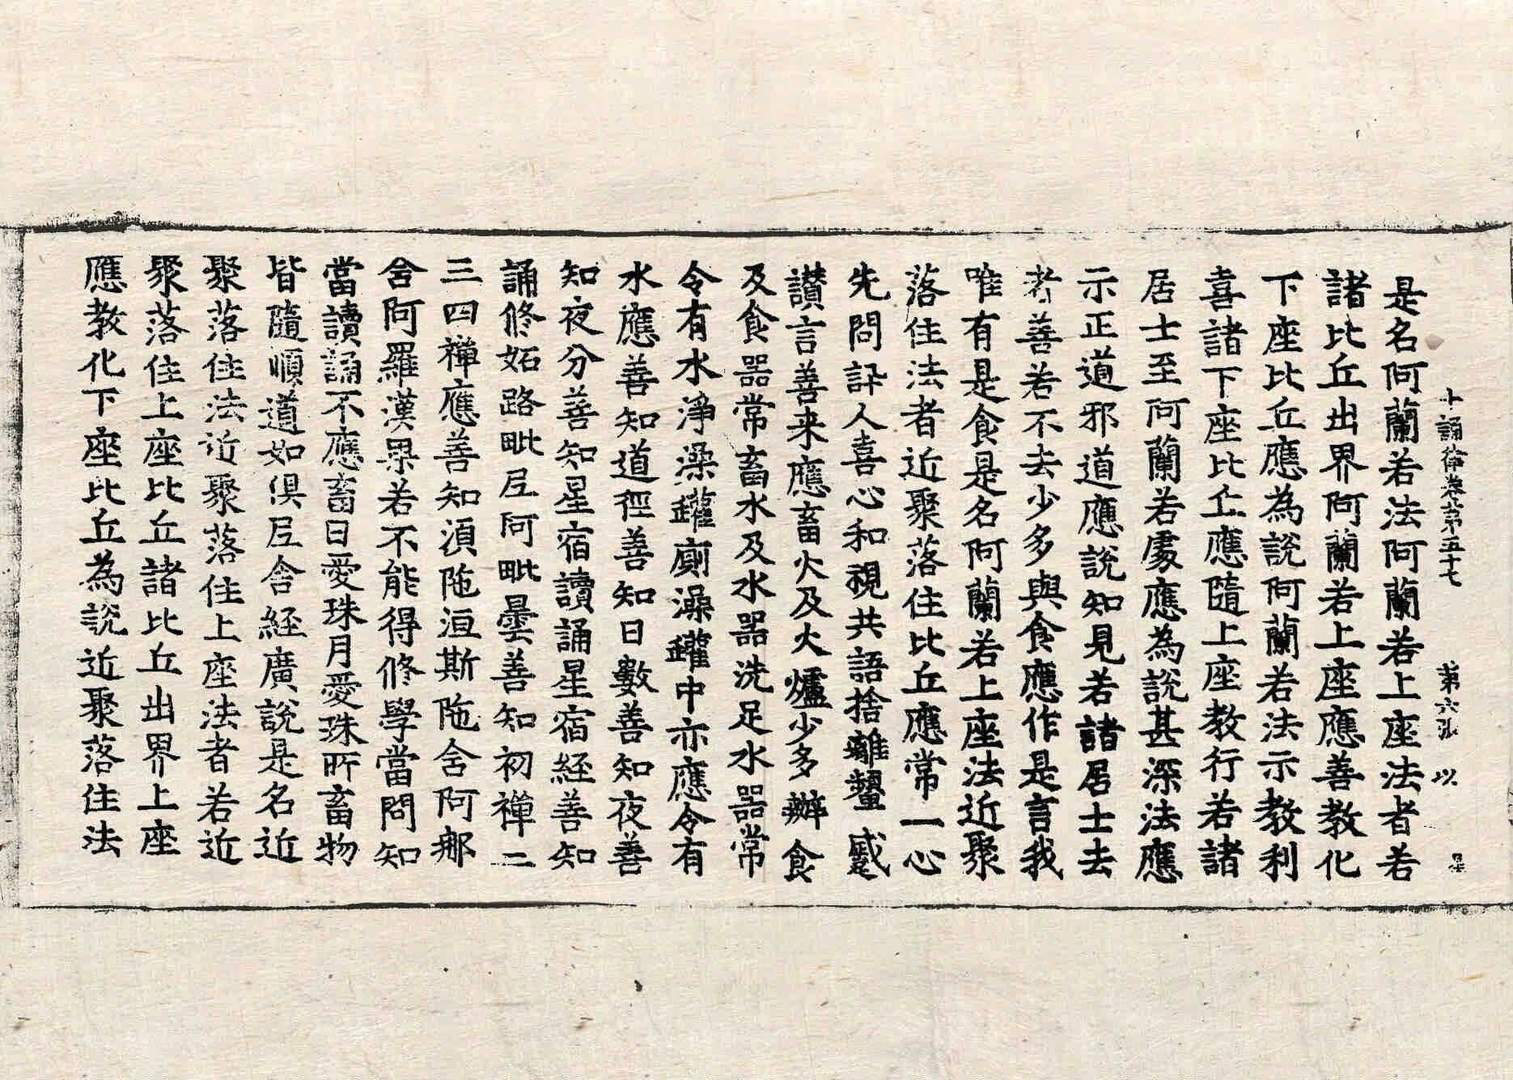 十誦律卷第五十七 第六張 以
是名阿蘭若法阿蘭若上座法者若
諸比丘出界阿蘭若上座應善教化
下座比丘應為說阿蘭若法示教利
喜諸下座比丘應隨上座教行若諸
居士至阿蘭若處應為說甚深法應
示正道邪道應說知見若諸居士去
者善若不去少多與食應作是言我
唯有是食是名阿蘭若上座法近聚
落住法者近聚落住比丘應常一心
先問訊人喜心和視共語捨離顰蹙
讚言善来應畜火及火爐少多辦食
及食器常畜水及水器洗足水器常
令有水淨澡罐廁澡罐中亦應令有
水應善知道徑善知日數善知夜善
知夜分善知星宿讀誦星宿経善知
誦修妬路毗尼阿毗曇善知初禪二
三四禪應善知湏陁洹斯陁含阿那
含阿羅漢果若不能得修學當問知
當讀誦不應畜日愛珠月愛珠所畜物
皆隨順道如俱尼舍経廣說是名近
聚落住法近聚落住上座法者若近
聚落住上座比丘諸比丘出界上座
應教化下座比丘為說近聚落住法